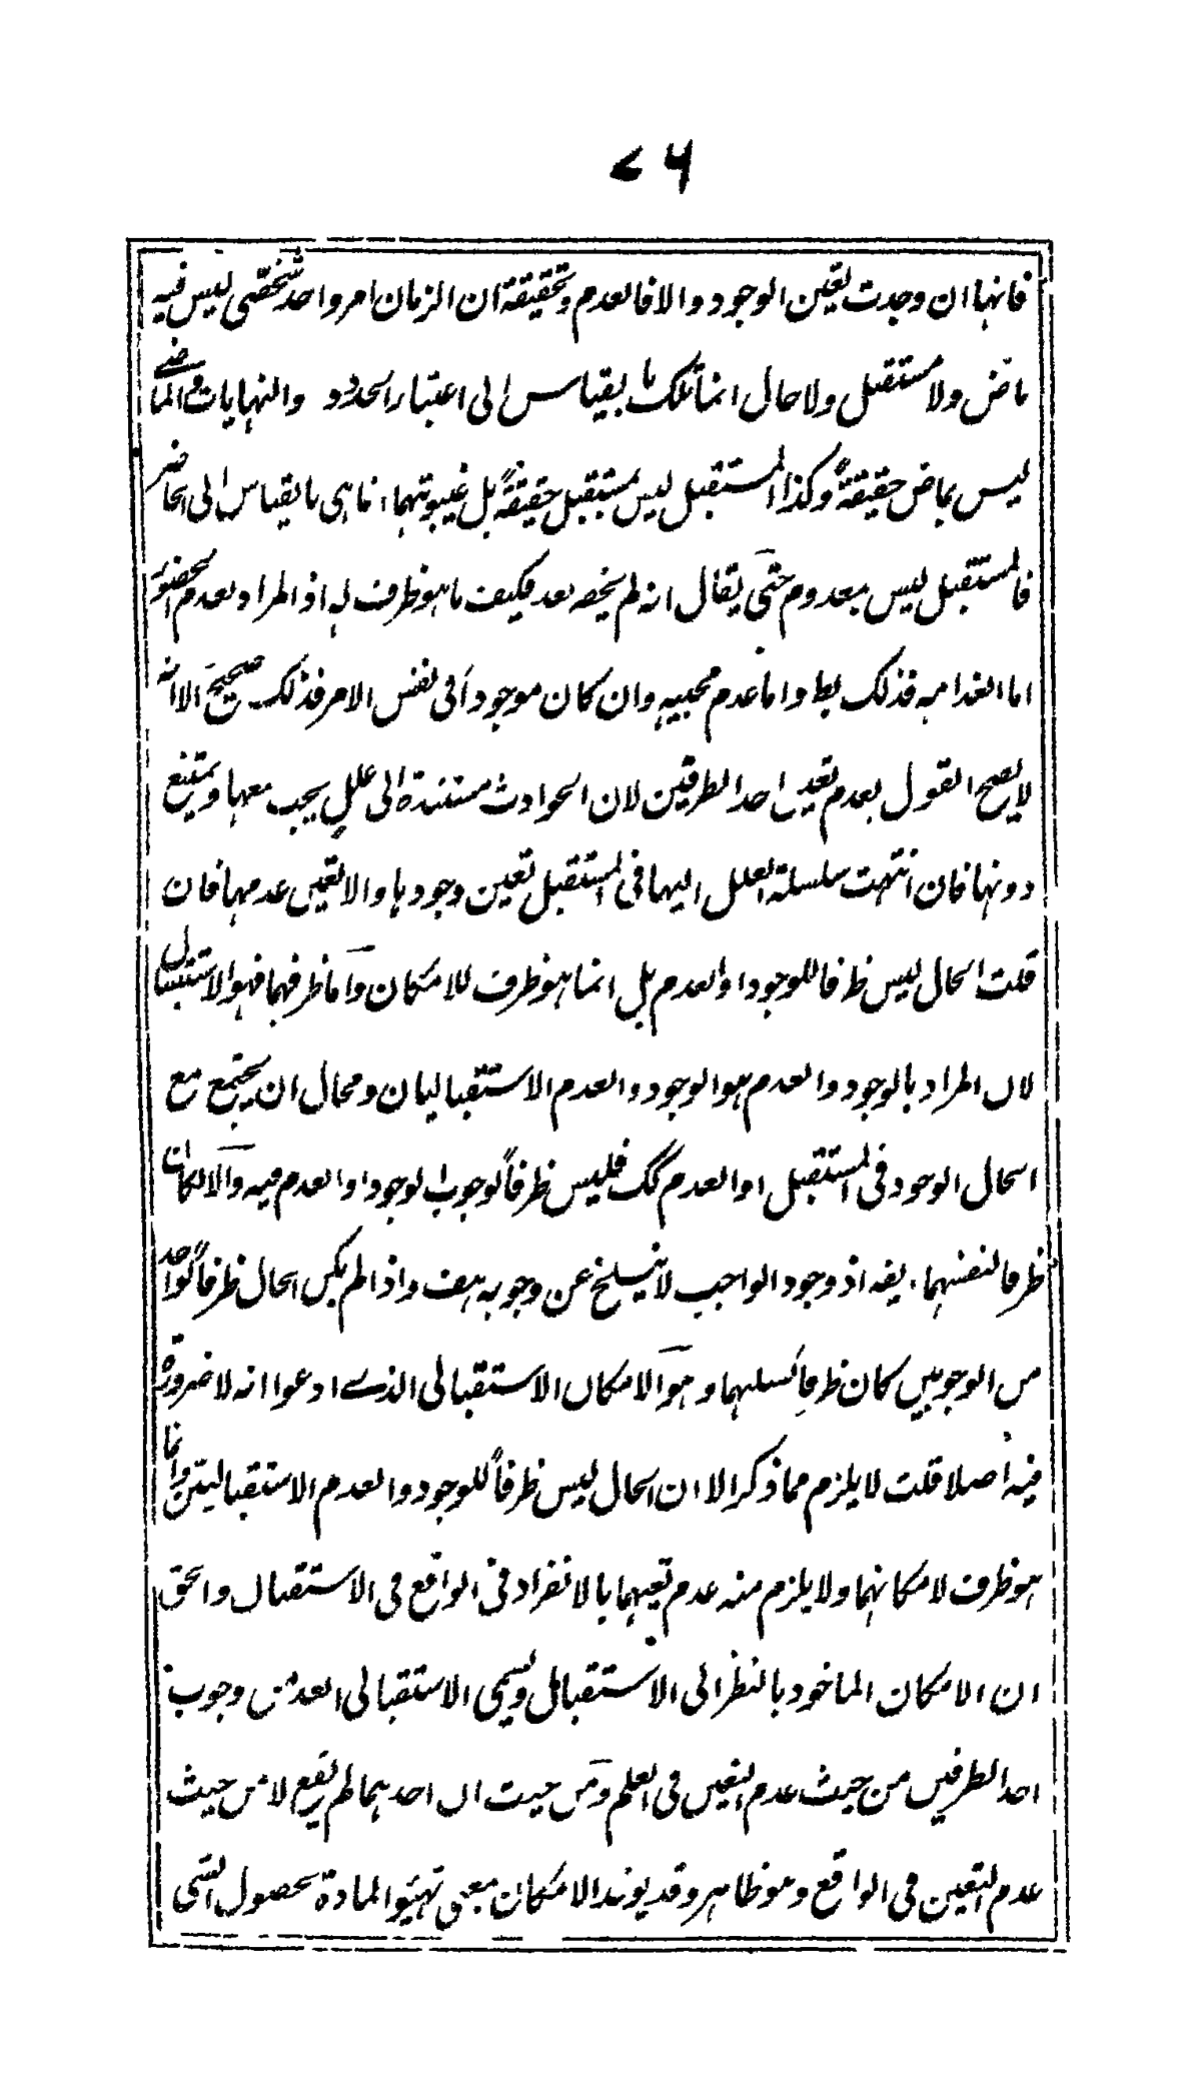 ٧٦
فانها ان وجدت تعين الوجود والا فالعدم وتحقيقة ان الزمان امر واحد شخصی ليس فيه
ماض ولا مستقبل ولا حال انما تلك بالقياس الى اعتبار الحدود والنهايات والماضے
ليس بماض حقيقةً وكذا المستقبل ليس بمستقبل حقيقةً بل غيبوبتهما انما هی بالقياس الى الحاضر
فالمستقبل ليس بمعدوم حتی يقال انه لم يخصه بعد فكيف ما هو ظرف له اذ المراد بعدم الحضور
اما انعدامه فذلك بط واما عدم مجيئه وان كان موجوداً فی نفس الامر فذلك صحيح الا انه
لا يصح القول بعدم تعين احد الطرفين لان الحوادث مستندة الى عللٍ يجب معها ويمتنع
دونها فان انتهت سلسلة العلل اليها فی المستقبل تعين وجودها والا تعين عدمها فان
قلت الحال ليس ظرفا للوجود او العدم بل انما هو ظرف للامكان واما ظرفهما فهو الاستقبال
لان المراد بالوجود والعدم هو الوجود والعدم الاستقباليان ومحال ان يجتمع مع
الحال الوجود فی المستقبل او العدم كك فليس ظرفاً لوجوب الوجود او العدم فيه والا لكان
ظرفا لنفسهما يفه اذ وجود الواجب لا ينسلخ عن وجوبه هف واذا لم يكن الحال ظرفاً لواحد
من الوجوبين كان ظرفا لسلبهما وهو الامكان الاستقبالی الذے ادعوا انه لا ضرورة
فيه اصلا قلت لا يلزم مما ذكر الا ان الحال ليس ظرفاً للوجود والعدم الاستقباليين وانما
هو ظرف لامكانهما ولا يلزم منه عدم تعينهما بالانفراد فی الواقع فی الاستقبال والحق
ان الامكان الماخوذ بالنظر الى الاستقبال ويسمی الاستقبالی العدم من وجوب
احد الطرفين من حيث عدم التعين فی العلم ومن حيث ان احدهما لم يقع لا من حيث
عدم التعين فی الواقع وهو ظاهر وقد يوخذ الامكان بمعنی تهيئو المادة لحصول الشی